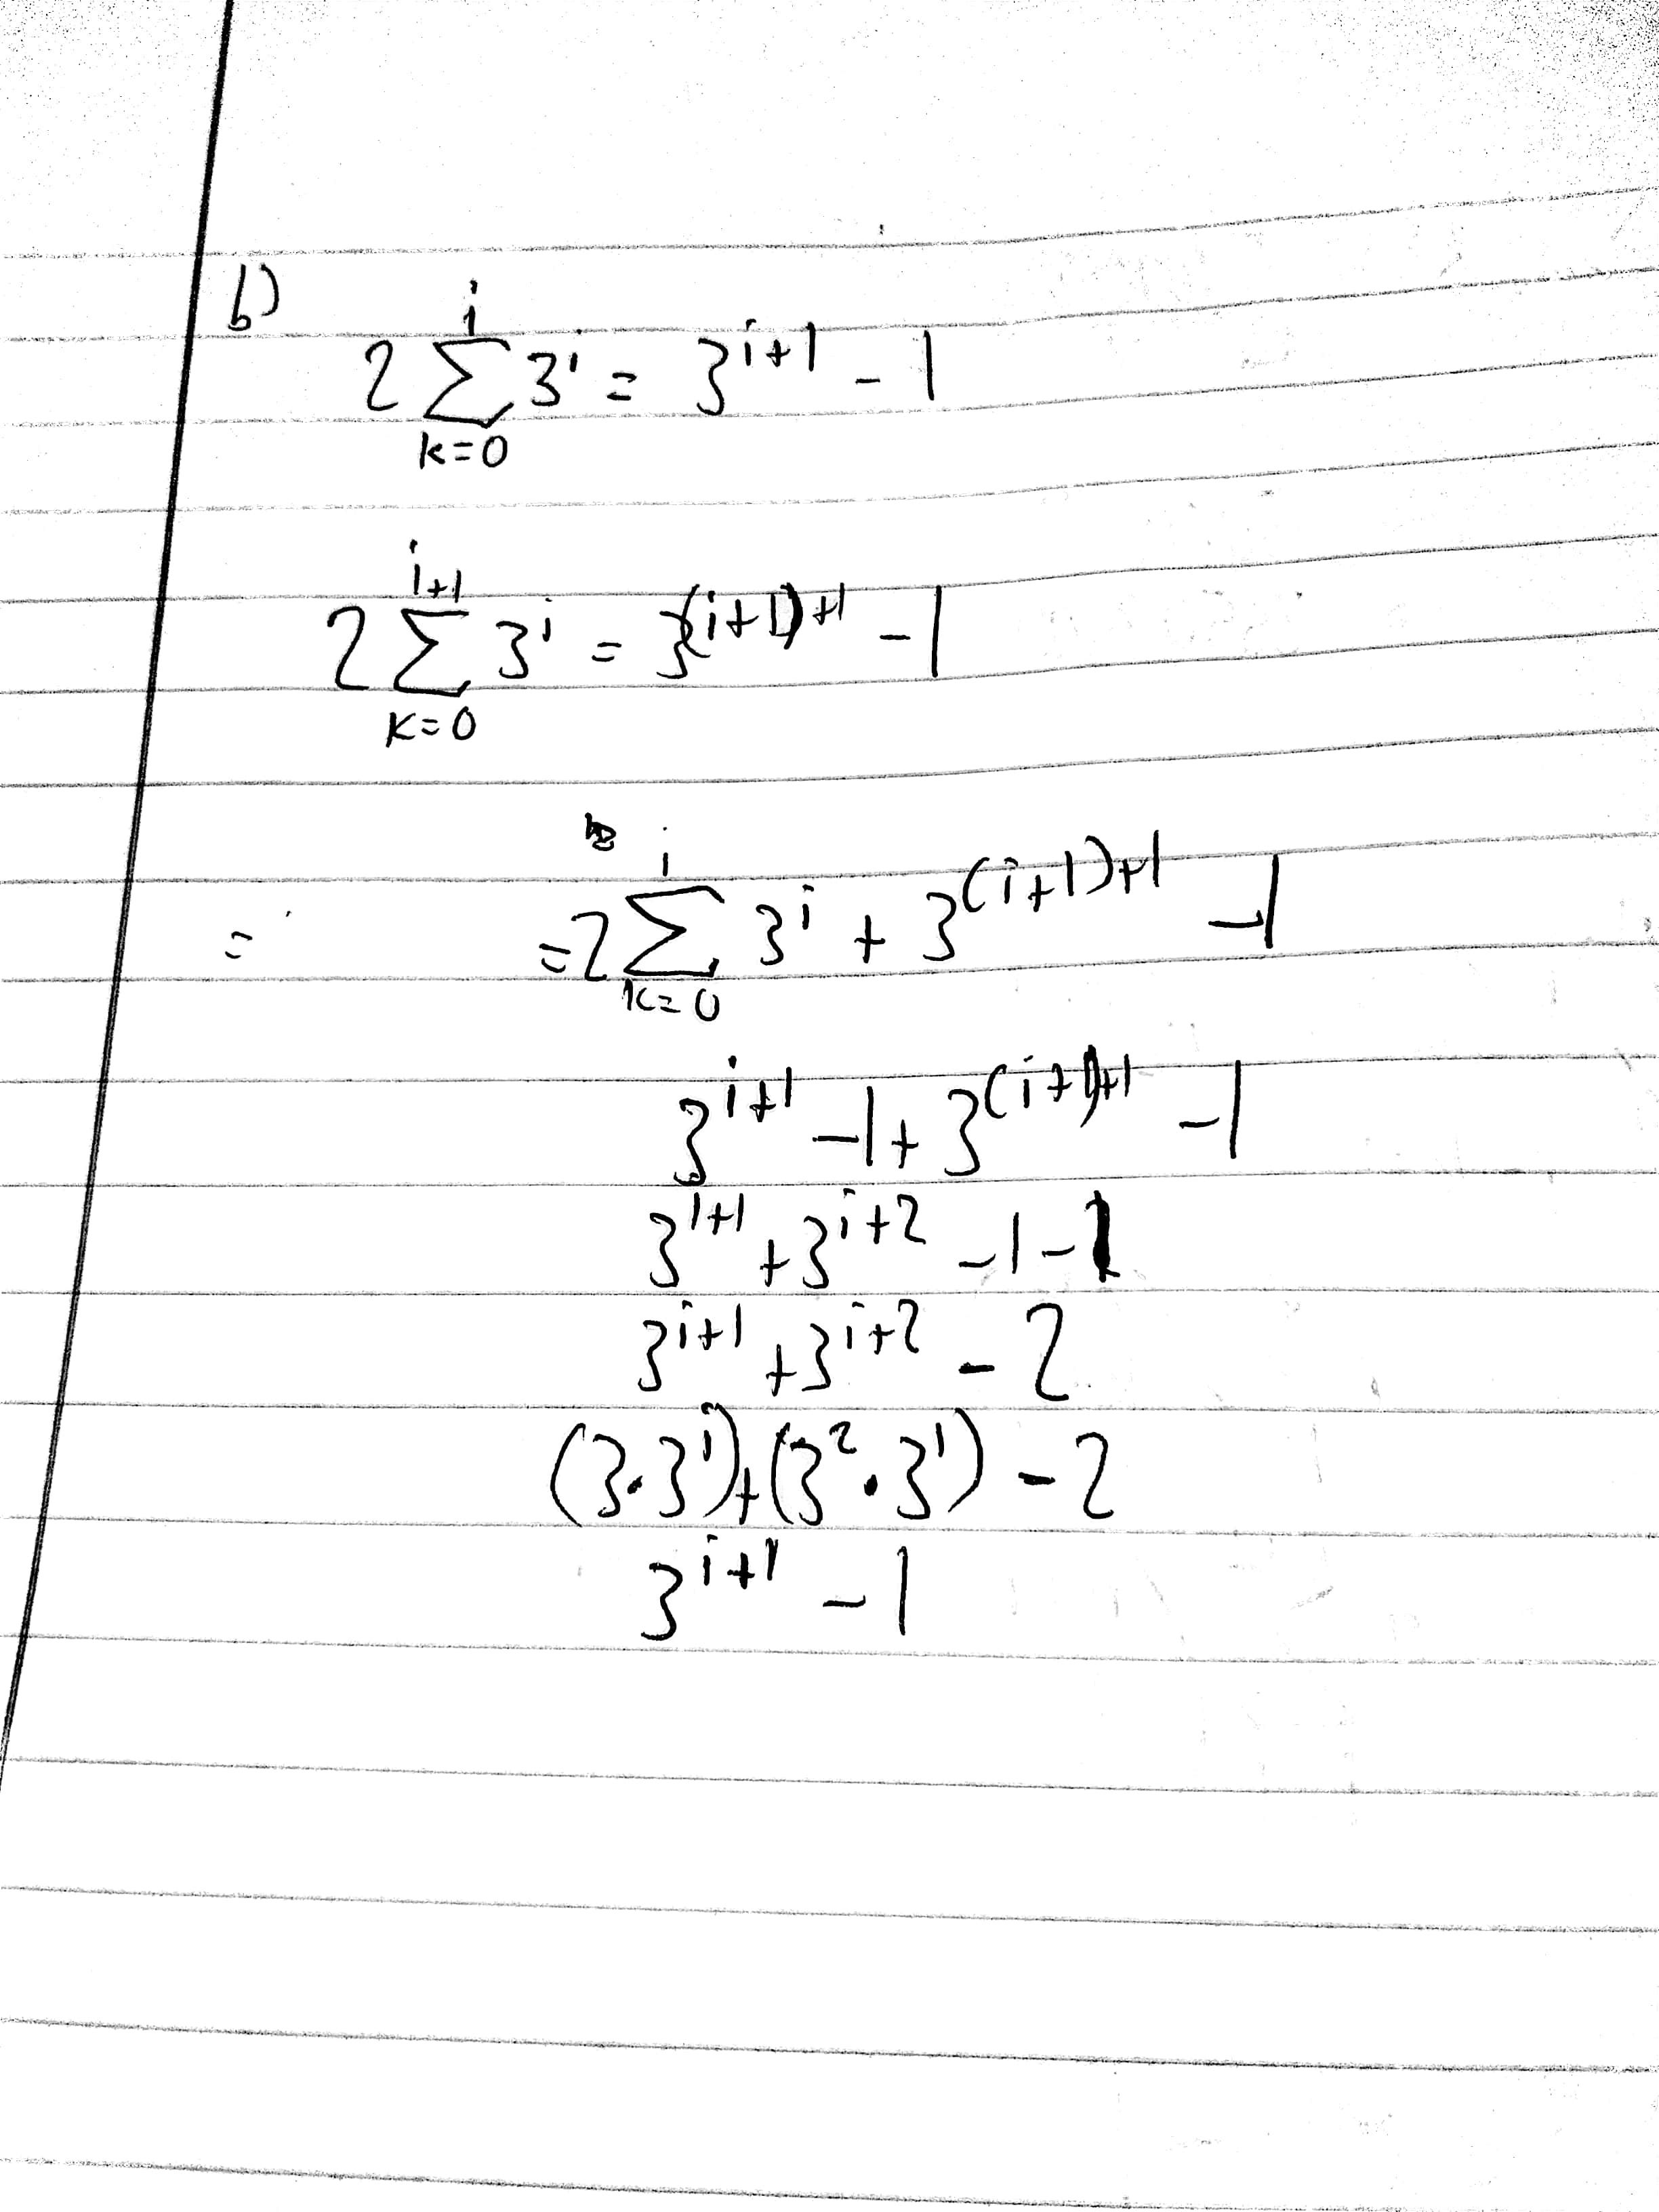 b)
2 ∑_{k=0}^{i} 3^i = 3^{i+1} - 1
2 ∑_{k=0}^{i+1} 3^i = 3^{(i+1)+1} - 1
= = 2 ∑_{k=0}^{i} 3^i + 3^{(i+1)+1} - 1
3^{i+1} - 1 + 3^{(i+1)+1} - 1
3^{i+1} + 3^{i+2} - 1 - 1
3^{i+1} + 3^{i+2} - 2
(3·3^i) + (3^2·3^i) - 2
3^{i+1} - 1